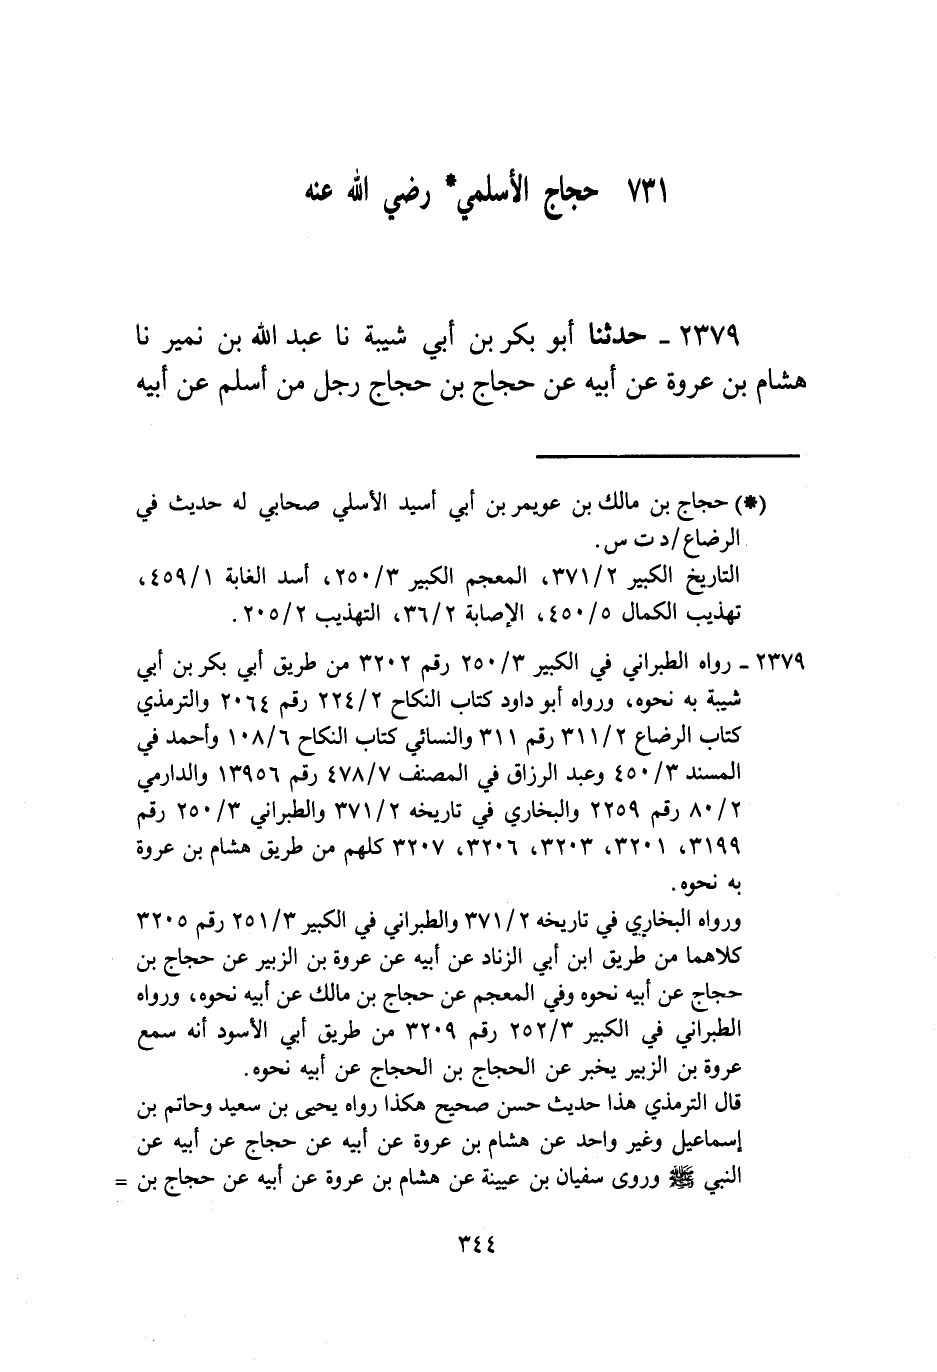 ٧٣١ حجاج الأسلمي* رضي الله عنه
٢٣٧٩ ـ حدثنا أبو بكر بن أبي شيبة نا عبد الله بن نمير نا
هشام بن عروة عن أبيه عن حجاج بن حجاج رجل من أسلم عن أبيه
(*) حجاج بن مالك بن عويمر بن أبي أسيد الأسلي صحابي له حديث في
الرضاع/د ت س.
التاريخ الكبير ٣٧١/٢، المعجم الكبير ٢٥٠/٣، أسد الغابة ٤٥٩/١،
تهذيب الكمال ٤٥٠/٥، الإصابة ٣٦/٢، التهذيب ٢٠٥/٢.
٢٣٧٩ ـ رواه الطبراني في الكبير ٢٥٠/٣ رقم ٣٢٠٢ من طريق أبي بكر بن أبي
شيبة به نحوه، ورواه أبو داود كتاب النكاح ٢٢٤/٢ رقم ٢٠٦٤ والترمذي
كتاب الرضاع ٣١١/٢ رقم ٣١١ والنسائي كتاب النكاح ١٠٨/٦ وأحمد في
المسند ٤٥٠/٣ وعبد الرزاق في المصنف ٤٧٨/٧ رقم ١٣٩٥٦ والدارمي
٨٠/٢ رقم ٢٢٥٩ والبخاري في تاريخه ٣٧١/٢ والطبراني ٢٥٠/٣ رقم
٣١٩٩، ٣٢٠١، ٣٢٠٣، ٣٢٠٦، ٣٢٠٧ كلهم من طريق هشام بن عروة
به نحوه.
ورواه البخاري في تاريخه ٣٧١/٢ والطبراني في الكبير ٢٥١/٣ رقم ٣٢٠٥
كلاهما من طريق ابن أبي الزناد عن أبيه عن عروة بن الزبير عن حجاج بن
حجاج عن أبيه نحوه وفي المعجم عن حجاج بن مالك عن أبيه نحوه، ورواه
الطبراني في الكبير ٢٥٢/٣ رقم ٣٢٠٩ من طريق أبي الأسود أنه سمع
عروة بن الزبير يخبر عن الحجاج بن الحجاج عن أبيه نحوه.
قال الترمذي هذا حديث حسن صحيح هكذا رواه يحيى بن سعيد وحاتم بن
إسماعيل وغير واحد عن هشام بن عروة عن أبيه عن حجاج عن أبيه عن
النبي ﷺ وروى سفيان بن عيينة عن هشام بن عروة عن أبيه عن حجاج بن =
٣٤٤